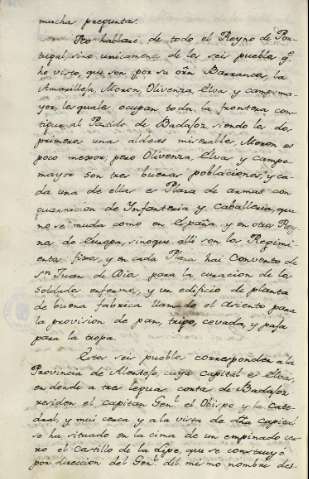 mucha preguntas.
No hablaré de todo el Reyno de Por-
tugal, sino unicamente de los seis pueblos q.e
he visto, que son por su orn Barranca, la
Amarilleja, Moron, Olivenza, Elva y campoma-
yor, los quales ocupan toda la frontera con-
tigua al Partido de Badajoz, siendo los dos
primeros una aldeas miserables, Moron es
poco mejor, pero Olivenza, Elva y campo
mayor son tres buenas poblaciones, y ca-
da una de ellas es Plaza de armas con
guarnicion de Infanteria y caballeria, que
no se muda como en España, y en otros Rey-
nos de Europa, sino que alli son los Regimi-
entos fixos, y en cada Plaza hai convento de
Sn Juan de Dios para la curacion de los
soldados enfermos, y un edificio de planta
de buena fabrica llamado el asiento para
la provision de pan, trigo, cevada, y paja
para la tropa.
Estos seis pueblos corresponden a la
Provincia de Alentejo, cuya capital es Elva,
en donde a tres leguas cortas de Badajoz
residen el capitan Genl el Obispo y la Cate-
dral, y mui cerca y a la vista de dha capital
se ha situado en la cima de un empinado cer-
ro el castillo de la Lipe, que se construyó
por direccion del Genl del mismo nombre des-